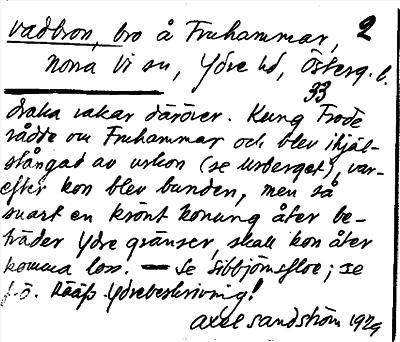 vadbron, bro å Fruhammar, 2
Norra Vi sn, Ydre hd, Österg. l.
33
draka vakar däröver. Kung Frode
rådde om Fruhammar och blev ihjäl-
stångad av urkon (se Urberget), var-
efter kon blev bunden, men så
snart en krönt konung åter be-
träder Ydre gränser, skall kon åter
komma loss. — Se Sibbjönsfloe; se
f. ö. Rääfs Ydrebeskrivning!
Axel Sandström 1929